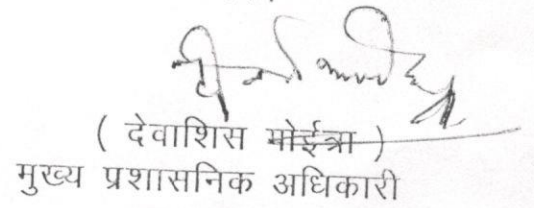 ( देवाशिस मोईत्रा )
मुख्य प्रशासनिक अधिकारी